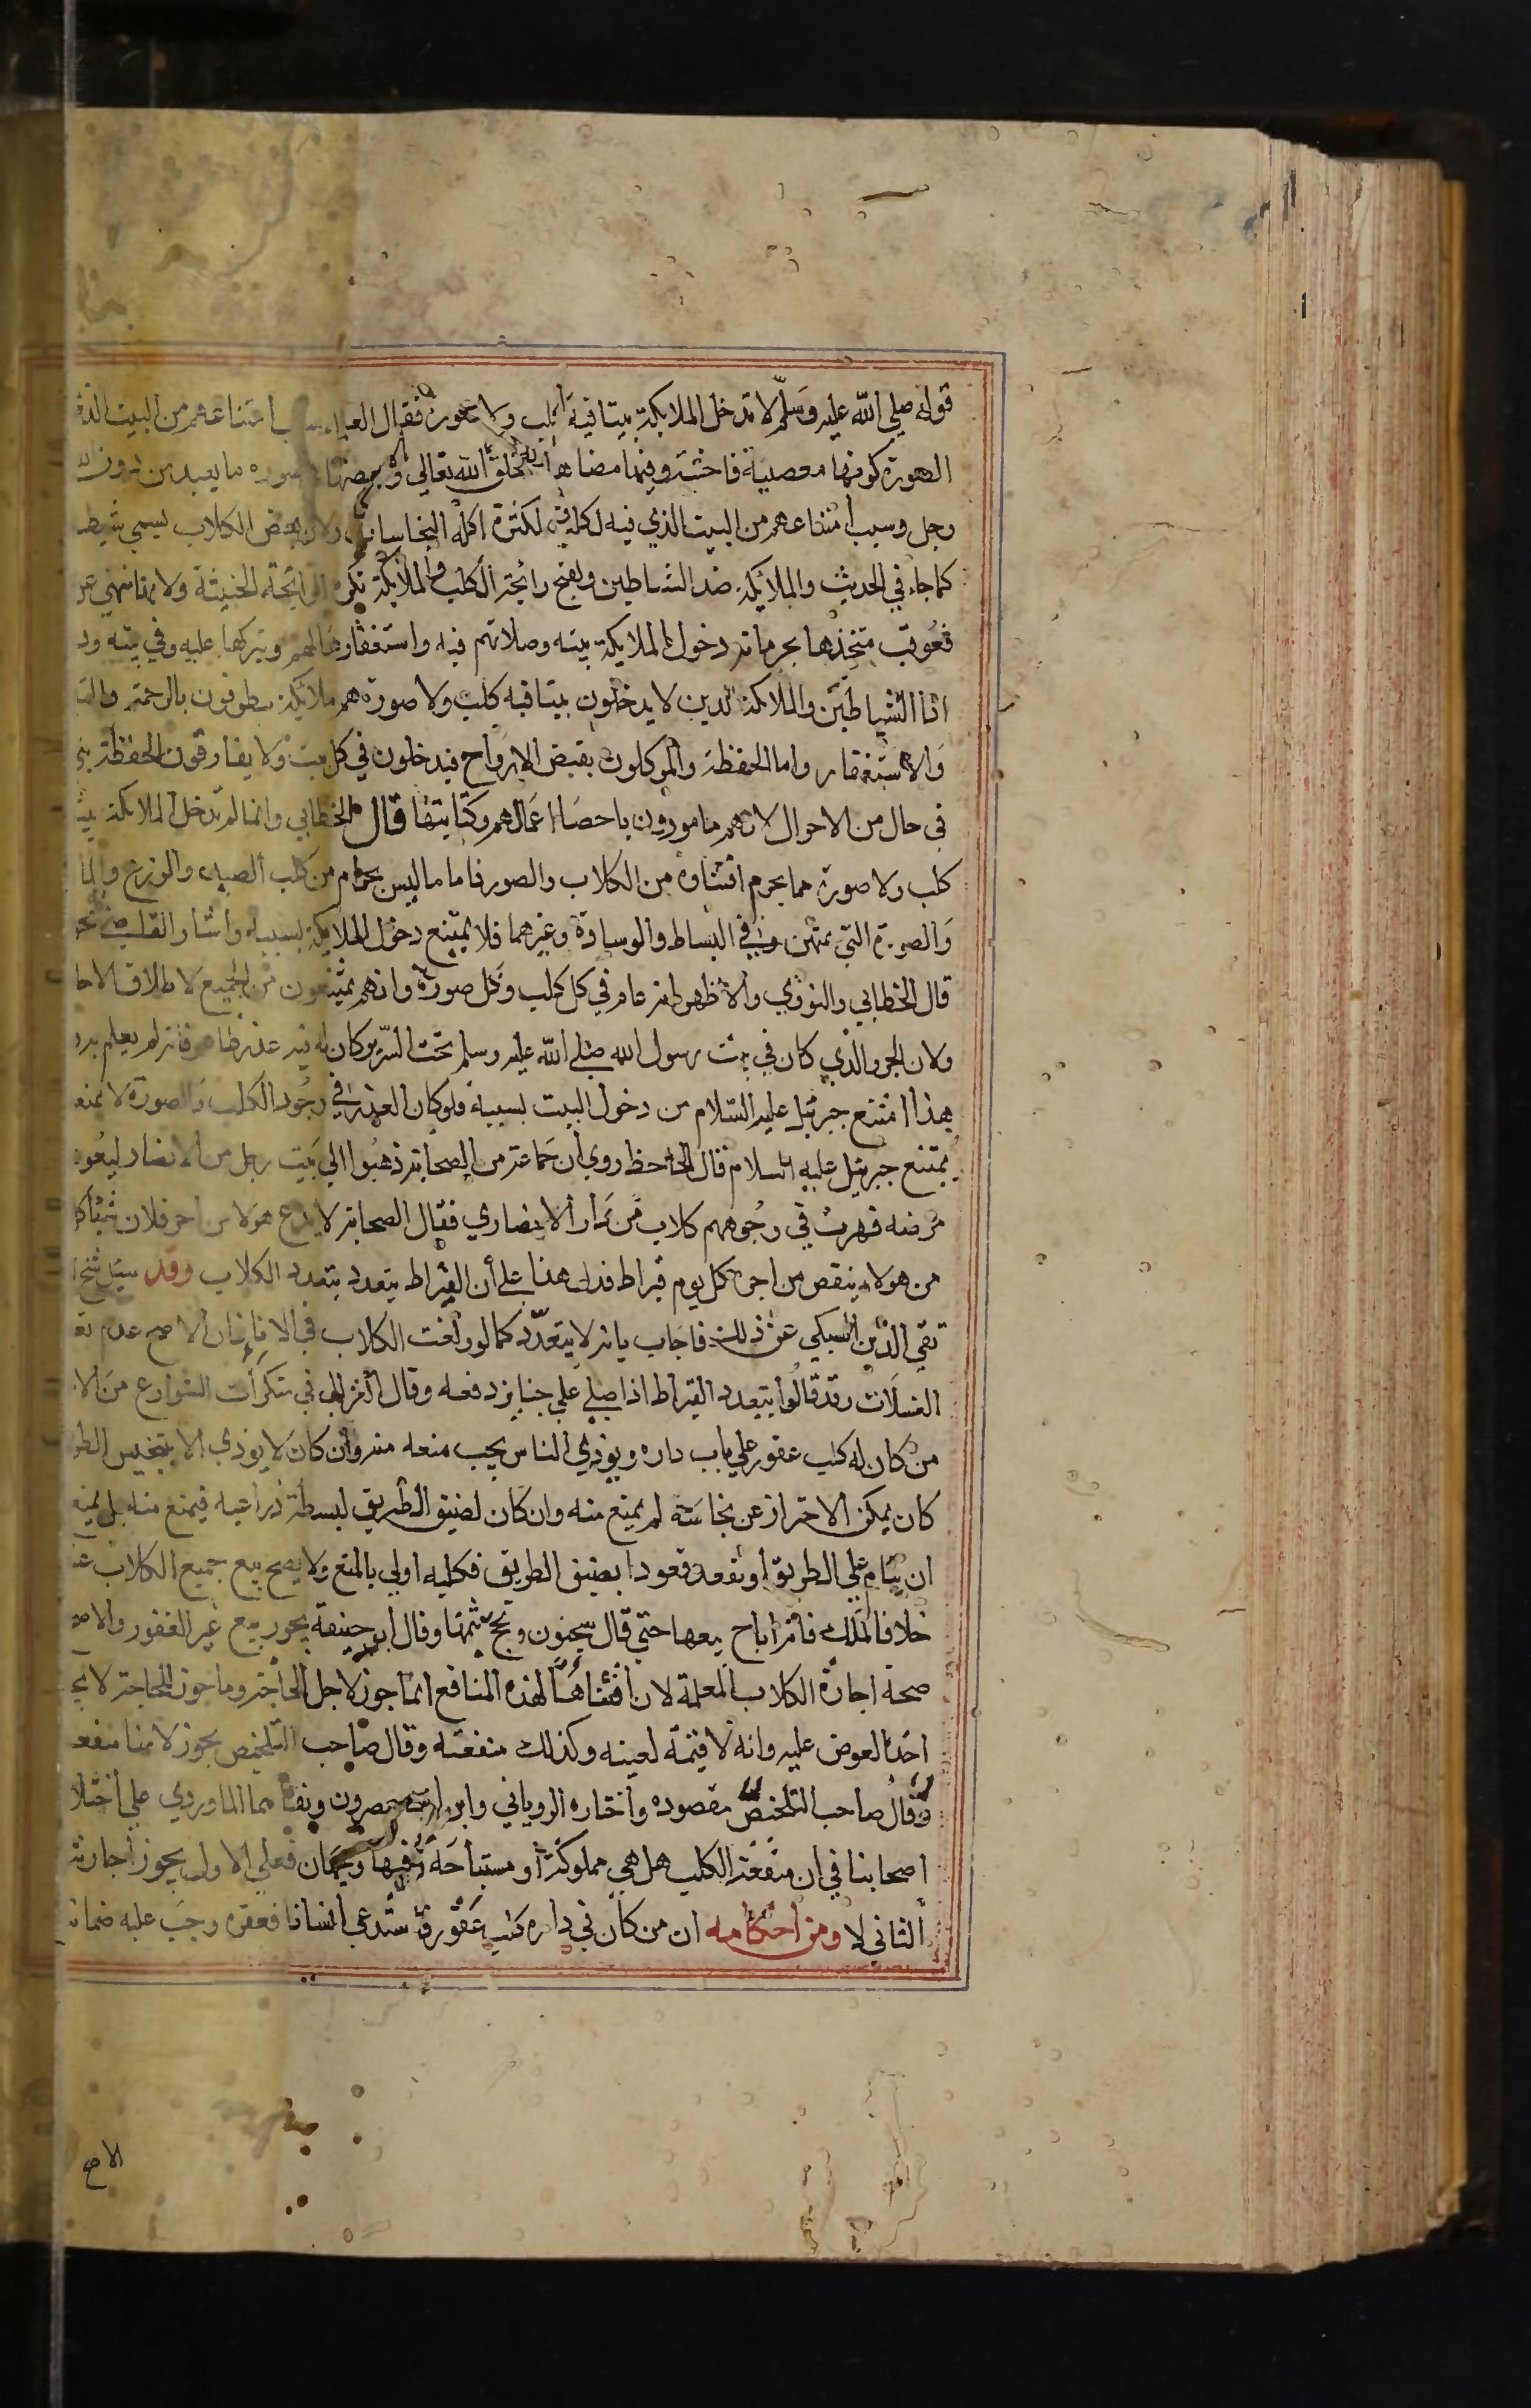 قوله صلي الله عليه وسلم لا تدخل الملايكة بيتا فيه كلب ولا صورة فقال العلماء سبب امتناعهم من البيت الذي
الصورة كونها معصية فاحشة وفيها مضاهاة لخلق الله تعالي وبعضها صوره ما يعبد من دون الله
وجل وسبب امتناعهم من البيت الذي فيه الكلب لكثرة اكله النجاسات ولان بعض الكلاب يسمي شيط
كما جاء في الحديث والملائكة ضد الشياطين ولقبح رائحة الكلب والملائكة تكره الرائحة الخبيثة ولانها منهي عن
فعوقب متخذها بحرمانه دخول الملايكة بيته وصلاتهم فيه واستغفارها لهم وتبركها عليه وفي بيته ود
اذا الشياطين والملائكة الذين لا يدخلون بيتا فيه كلب ولا صورة هم ملائكة يطوفون بالرحمة والت
والاستغفار واما الحفظة والموكلون بقبض الارواح فيدخلون في كل بيت ولا يفارقون الحفظة بني
في حال من الاحوال لانهم مامورون باحصا اعمالهم وكتابتها قال الخطابي وانما لم تدخل الملائكة بيتا
كلب ولا صورة مما يحرم اقتناوه من الكلاب والصور فاما ما ليس بحرام من كلب الصيد والزرع والما
والصورة التي تمتهن في البساط والوسادة وغيرهما فلا يمتنع دخول الملايكة بسببه واشار القاضي نحو
قال الخطابي والنووي والاظهر انه عام في كل كلب وكل صورة وانهم يمتنعون من الجميع لاطلاق الاحا
ولان الجرو الذي كان في بيت رسول الله صلي الله عليه وسلم تحت السرير كان له فيه عذر ظاهر فانه لم يعلم به و
هذا امتنع جبرئيل عليه السلام من دخول البيت بسببه فلو كان العذر في وجود الكلب والصورة لا يمنع
يمتنع جبرئيل عليه السلام قال الجاحظ روي ان جماعة من الصحابة ذهبوا الي بيت رجل من الانصار ليعود
مرضه فهرت في وجوههم كلاب من دار الانصاري فقال الصحابة لا يدع هولا من اجر فلان شيئا كل
من هولا ينقص من اجره كل يوم قيراط فدل هذا علي أن القيراط يتعدد بتعدد الكلاب وقد سئل شيخ
تقي الدين السبكي عن ذلك فاجاب بانه لا يتعدد كما لو ولغت الكلاب في الانا فان الاصح عدم تع
الغسلات وقد قالوا يتعدد القيراط اذا صلي علي جنايز دفعه وقال الغزالي في منكرات الشوارع من الا
من كان له كلب عقور علي باب داره ويؤذي الناس يجب منعه منه وان كان لا يوذي الا بتنجيس الطر
كان يمكن الاحتراز عن نجاسته لم يمنع منه وان كان لضيق الطريق لبسطة ذراعيه فيمنع منه بل يمنع
ان ينام علي الطريق او يقعد قعودا يضيق الطريق فكلبه اولي بالمنع ولا يصح بيع جميع الكلاب عند
خلافا لمالك فانه اباح بيعها حتي قال سحنون ويحج بثمنها وقال ابو حنيفة يجوز بيع غير العقور والاصح
صحة اجارة الكلاب المعلمة لان اقتناها لهذه المنافع انما جوز لاجل الحاجة وما جوز للحاجة لا يج
اخذ العوض عليه وانه لا قيمة لعينه وكذلك منفعته وقال صاحب التلخيص يجوز لانها منفعة
وقال صاحب التلخيص مقصوده واختاره الروياني وابن ابي عصرون وبناهما الماوردي علي اختلا
اصحابنا في ان منفعة الكلب هل هي مملوكة او مستباحة وفيها وجهان فعلي الاول يجوز اجارته
الثاني لا ومن احكامه ان من كان في داره كلب عقور فاستدعي انسانا فعقره وجب عليه ضمانه
الاصح